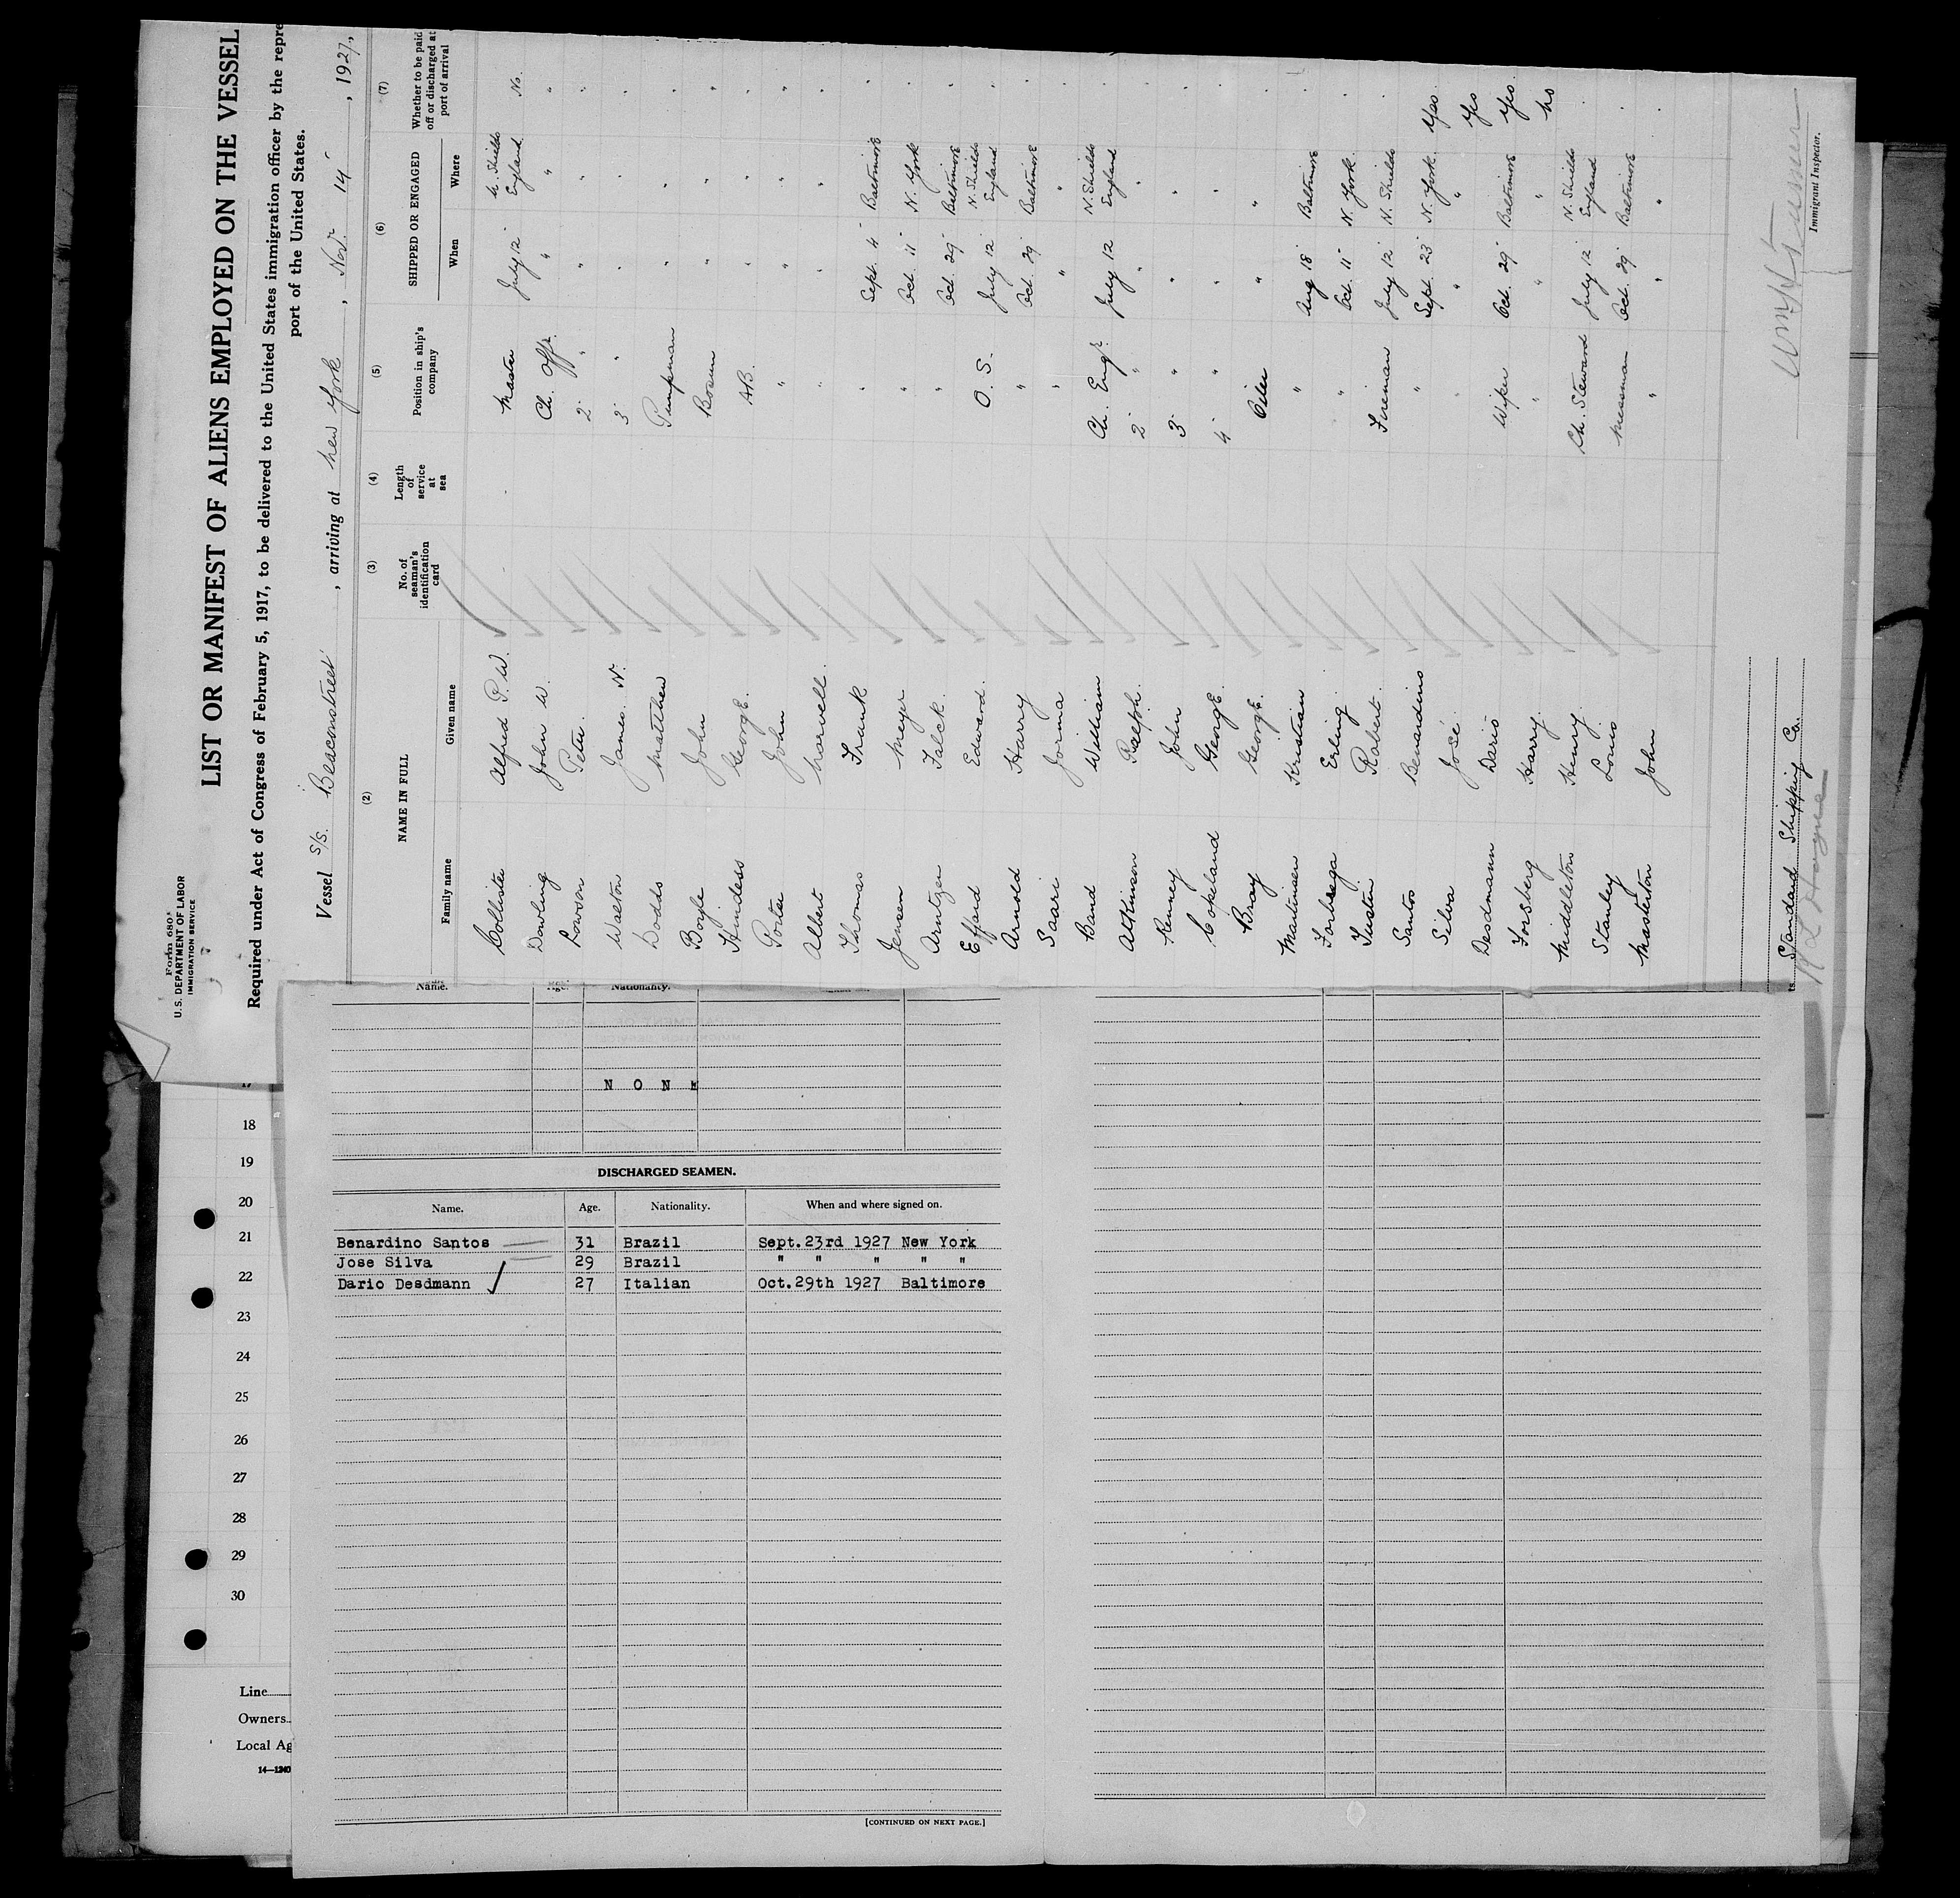 Form 680
U.S. DEPARTMENT OF LABOR
IMMIGRATION SERVICE
LIST OR MANIFEST OF ALIENS EMPLOYED ON THE VESSEL
Required under Act of Congress of February 5, 1917, to be delivered to the United States immigration officer by the repre
port of the United States.
Vessel S/S. Beaconstreet, arriving at New York, Nov. 14, 1927,
(2) (3) (4) (5) (6) (7)
NAME IN FULL No. of seaman's identification card Length of service at sea Position in ship's company SHIPPED OR ENGAGED Whether to be paid off or discharged at port of arrival
Family name Given name When Where
Collister Alfred P. W. Master July 12 N. Shields England No.
Dowling John W. Ch. Offr. " " "
Lowson Peter 2 " " " "
Walton James N. 3 " " " "
Dodds Matthew Pumpman " " "
Boyle John Bosun " " "
Hindess George AB. " " "
Porter John " " " "
Albert Marvell " " "
Thomas Frank " Sept. 4 Baltimore "
Jensen Meyer " Oct. 11 N. York "
Arntzen Falck " Oct. 29 Baltimore "
Efford Edward O. S. July 12 N. Shields England "
Arnold Harry " Oct. 29 Baltimore "
Saari Jorma " " " "
Band William Ch. Engr. July 12 N. Shields England "
Atkinson Ralph 2 " " " "
Kenney John 3 " " " "
Copeland George 4 " " " "
Bray George Oiler " " "
Martinsen Kristian " Aug 18 Baltimore "
Erling " Oct. 11 N. York "
Tustin Robert Fireman July 12 N. Shields "
Santos Benardino " Sept. 23 N. York Yes
Silva José " " " Yes
Desdmann Dario Wiper Oct. 29 Baltimore Yes
Forsberg Harry " " " No
Middleton Henry Ch. Steward July 12 N. Shields England
Stanley Louis Messman Oct. 29 Baltimore "
Masterton John " " " "
Standard Shipping Co.
Immigrant Inspector.
Name. Nationality.
NONE
DISCHARGED SEAMEN.
Name. Age. Nationality. When and where signed on.
Benardino Santos 31 Brazil Sept.23rd 1927 New York
Jose Silva 29 Brazil " " " " "
Dario Desdmann 27 Italian Oct.29th 1927 Baltimore
[CONTINUED ON NEXT PAGE.]
17
18
19
20
21
22
23
24
25
26
27
28
29
30
Line
Owners
Local Ag
14—1240